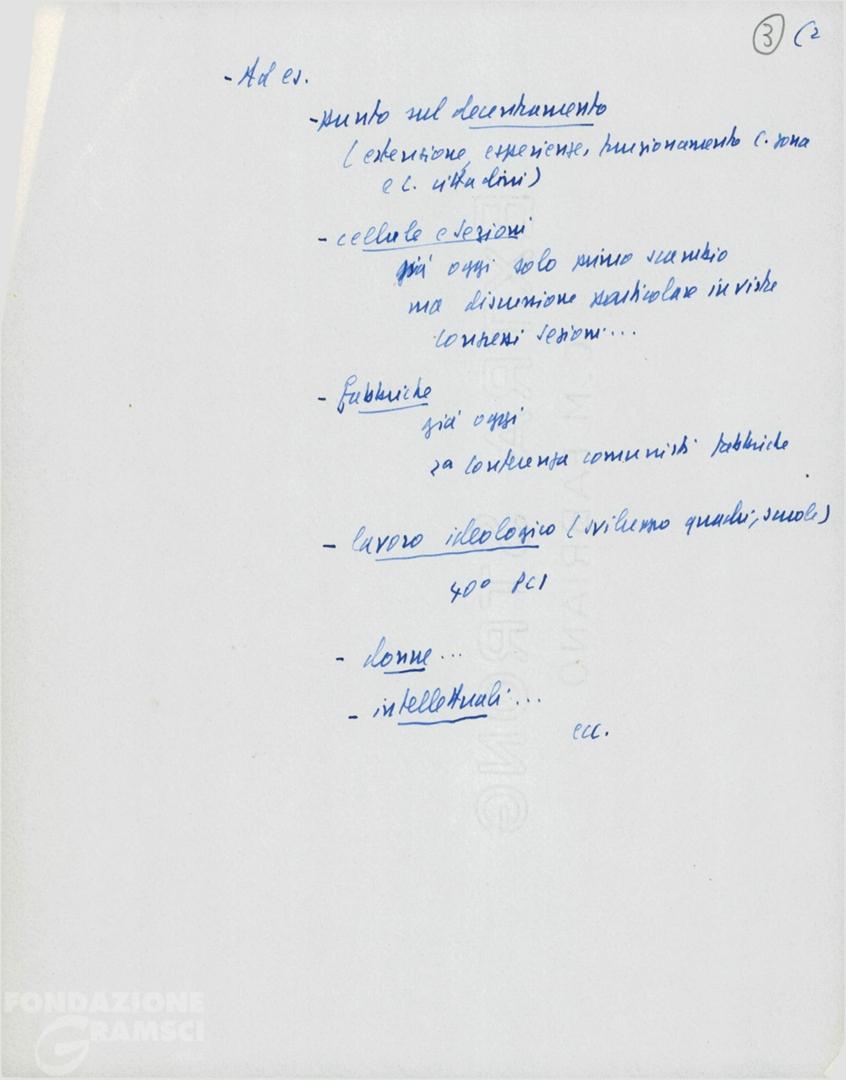 3 (2
- Ad es.
- punto sul decentramento
(estensione, esperienze, funzionamento C. zona
e C. cittadini)
- cellule e sezioni
già oggi solo primo scambio
ma discussione particolare in vista
congressi sezioni...
- fabbriche
già oggi
2ª conferenza comunisti fabbriche
- lavoro ideologico (sviluppo quadri, scuole)
40º PCI
- donne...
- intellettuali...
ecc.
FONDAZIONE
GRAMSCI